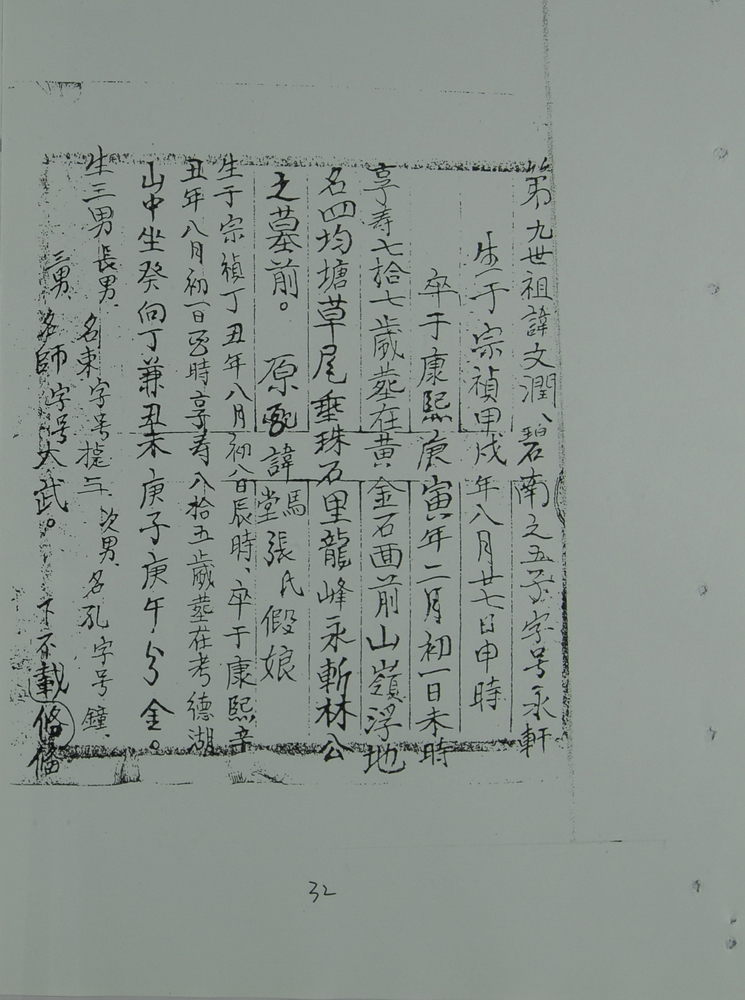 第九世祖諱文潤、碧南之五子字号永軒
生于宗禎甲戌年八月廿七日申時
卒于康熙庚寅年二月初一日未時
享寿七拾七歲塟在黃金石面前山嶺浮地
名四均塘草尾垂珠石里龍峰永斬林公
之墓前。原配諱馬堂張氏假娘
生于宗禎丁丑年八月初八日辰時、卒于康熙辛
丑年八月初一日酉時享寿八拾五歲塟在考德湖
山中坐癸向丁兼丑未庚子庚午分金。
生三男長男、名東字号振 次男、名孔字号鐘、
三男、名師字号大武。下不載
32